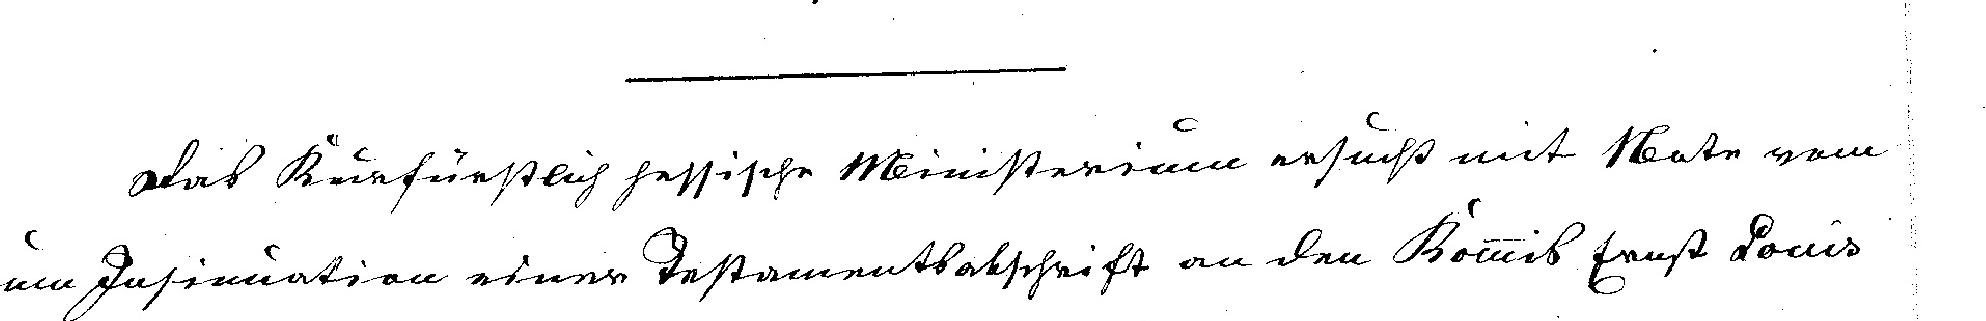 Das Kurfürstlich hessische Ministerium ersucht mit Note vom
um Insinuation einer Testamentsabschrift an den Kom̅is Ernst Louis